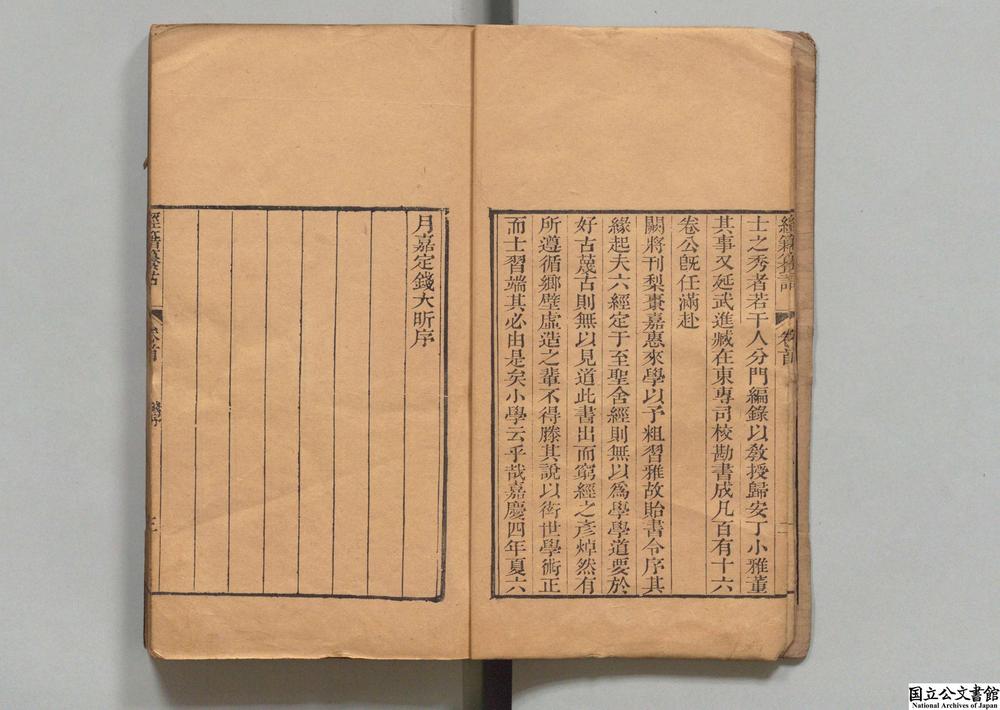 經籍籑詁 卷首 二
士之秀者若干人分門編錄以敎授歸安丁小雅董
其事又延武進臧在東專司校勘書成凡百有十六
卷公旣任滿赴
闕將刊梨棗嘉惠來學以予粗習雅故貽書令序其
緣起夫六經定于至聖舍經則無以爲學學道要於
好古蔑古則無以見道此書出而窮經之彥焯然有
所遵循鄉壁虛造之輩不得滕其說以衒世學術正
而士習端其必由是矣小學云乎哉嘉慶四年夏六
月嘉定錢大昕序
經籍籑詁 卷首 錢序 三
国立公文書館
National Archives of Japan